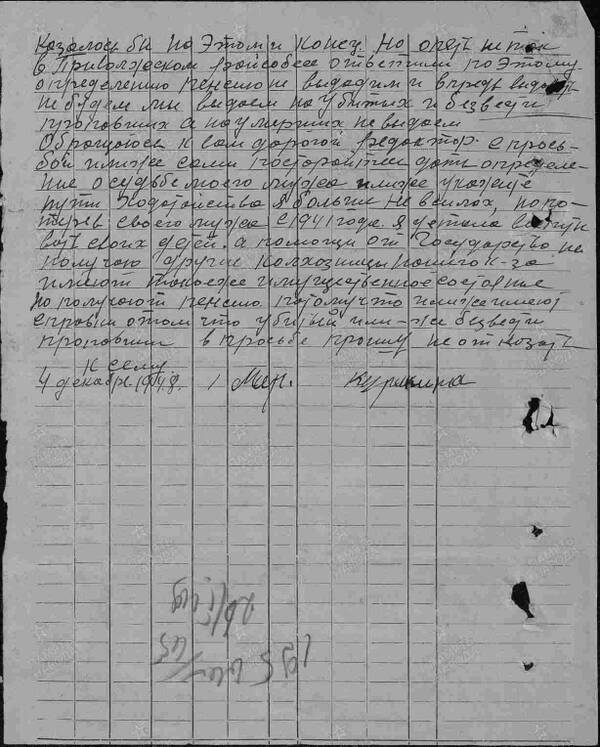 Казалось бы на Этом и Конец. Но опять не так
в Приволжском райсобесе ответили по Этому
определению пенсию не выдадим и впредь выдавать
не будем мы выдаем на убитых и безвести
пропавших а на умерших не выдаем
Обращаюсь к вам дорогой редактор с прось-
бой или же сами постарайтесь дать определе-
ние о судьбе моего мужа или же укажите
пути ходатайства я больше не в силах, по по-
теряв своего мужа с 1941 года. Я устала
своих детей. а помощи от Государства не
получаю другие Колхозницы нашего к-за
имеют такое же имущественное состояние
но получают пенсию потому что или же имеют
справки о том что убитый или-же безвести
пропавший в просьбе прошу не отказать
К сему
4 декабря 1948. Мер. Курикина